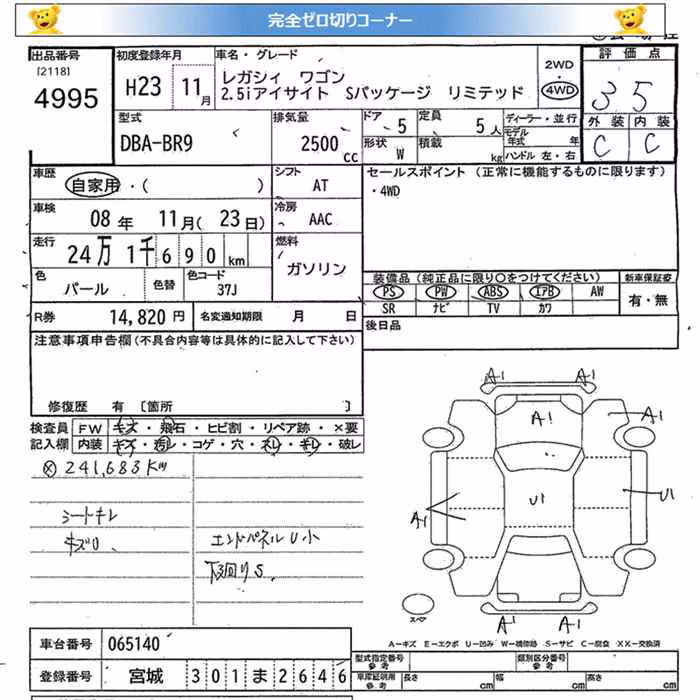 完全ゼロ切りコーナー
出品番号
[2118]
4995
初度登録年月
H23 11月
車名・グレード
レガシィ ワゴン
2.5iアイサイト Sパッケージ リミテッド
2WD
4WD
評価点
3 5
外装 内装
C C
型式
DBA-BR9
排気量
2500
CC
ドア 5
形状 W
定員 5人
積載 kg
ディーラー・並行
モデル年式 年
ハンドル 左・右
車歴
自家用・( )
シフト
AT
セールスポイント (正常に機能するものに限ります)
・4WD
車検
08年 11月(23日)
冷房
AAC
走行
24万1千690km
燃料
ガソリン
色
パール
色替
色コード
37J
装備品(純正品に限り○をつけてください)
新車保証書
PS PW ABS エアB AW
有・無
SR ナビ TV カワ
R券 14,820円
名変通知期限 月 日
後日品
注意事項申告欄(不具合内容等は具体的に記入して下さい)
修復歴 有 [箇所 ]
検査員
記入欄
FW キズ・飛石・ヒビ割・リペア跡・×要
内装 キズ・汚レ・コゲ・穴・スレ・キレ・破レ
241,683Km
シートキレ
キズU
エンドパネルU小
下回りS
A1 A1
A1 A1
U1
U1
A1
A1 A1
スペア
A=キズ E=エクボ U=凹み W=補修跡 S=サビ C=腐食 XX=交換済
車台番号 065140
登録番号 宮城 301ま2646
型式指定番号
参考
類別区分番号
参考
車庫証明用
参考
長さ cm
幅 cm
高さ cm